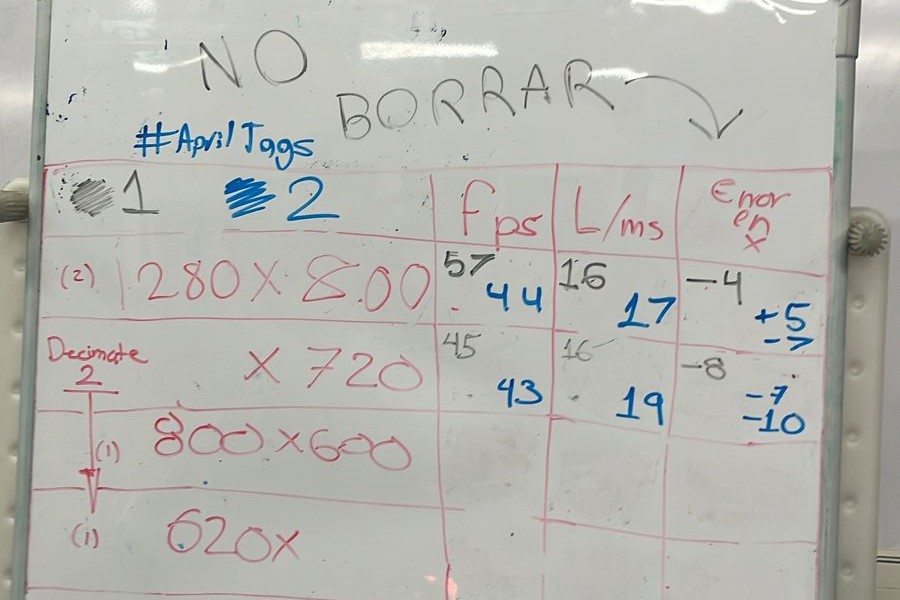 NO
BORRAR
#April Tags
1 2 fps L/ms Error en x
(2) 1280X800 57 44 16 17 -4 +5 -7
Decimate 2 X 720 45 43 16 19 -8 -7 -10
(1) 800x600
(1) 620x